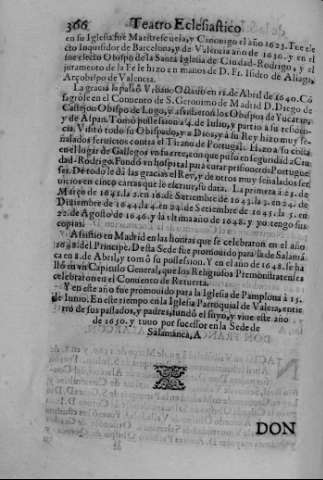 366 Teatro Eclesiastico
en su Iglesia fue Maestrescuela, y Canonigo el año 1623. Fue ele
cto Inquisidor de Barcelona, y de Valencia año de 1630. y en el
fue electo Obispo de la Santa Iglesia de Ciudad-Rodrigo, y el
juramento de la Fè le hizo en manos de D. Fr. Isidro de Aliaga,
Arçobispo de Valencia.
La gracia la passò Vrbano Octauo en de Abril de 1640. Có
sagròle en el Conuento de S. Geronimo de Madrid D. Diego de
Castejon Obispo de Lugo, y assistieron los Obispos de Yucatan,
y de Aspan. Tomò possession a 4. de Iulio, y partiò a su residencia.
Visitò todo su Obispado, y a Dios, y a su Rey hizo muy se-
ñalados seruicios contra el Tirano de Portugal. Hizo a su costa
en el lugar de Gallegos vn fuerte, con que puso en seguridad a Ciu
dad-Rodrigo. Fundò vn hospital para curar prisioneros Portugue
ses. De todo le dà las gracias el Rey, y de otros muy señalados ser
uicios en cinco cartas que le escriue, su data. La primera a 25. de
Março de 1642. la 2. en 16. de Setiembre de 1643. la 3. en 24. de
Diziembre de 1644. la 4. en 24. de Setiembre de 1645. la 5. en
22. de Agosto de 1646. y la vltima año de 1648. y yo tengo sus
copias.
Assistio en Madrid en las honras que se celebraron en el año
1648. del Principe. Desta Sede fue promouido para la de Salamá
ca en 8. de Abril, y tomò su possession. Y en el año de 1648. se ha
llò en vn Capitulo General, que los Religiosos Premonstratenses
celebraron en el Conuento de Retuerta.
Y en este año fue promouido para la Iglesia de Pamplona à 15.
de Iunio. En este tiempo en la Iglesia Parroquial de Valera, entie
rro de sus passados, y padres, fundò el suyo, y viue este año
de 1650. y tuuo por sucessor en la Sede de
Salamanca, A
DON